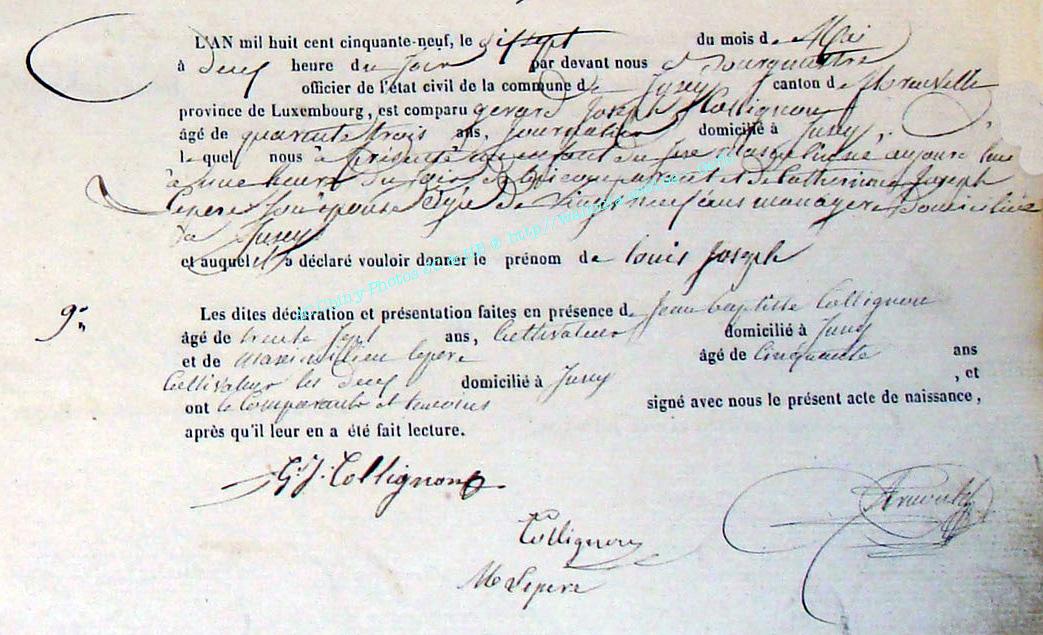 L'AN mil huit cent cinquante-neuf, le dix sept du mois de Mai
à deux heure du soir par devant nous
officier de l'état civil de la commune de Jusey canton de
province de Luxembourg, est comparu gerard Joseph Collignon
âgé de quarante trois ans, Journalier domicilié à Jusey,
lequel nous à présenté un enfant du sexe Masqulin né aujourd'hui
à une heure du soir de lui comparant et de Catherine Joseph
Lepere son épouse agé de vingt neuf ans menagere Domiciliée
à Jusey
et auquel il a déclaré vouloir donner le prénom de Louis Joseph
9e
Les dites déclaration et présentation faites en présence de Jean baptiste Collignon
âgé de trente sept ans, Cultivateur domicilié à Jusey
et de Maximilien Lepere âgé de Cinquante ans
Cultivateur les deux domicilié à Jusey , et
ont le Comparant et temoins signé avec nous le présent acte de naissance,
après qu'il leur en a été fait lecture.
G. J. Collignon
Collignon
M Lepere